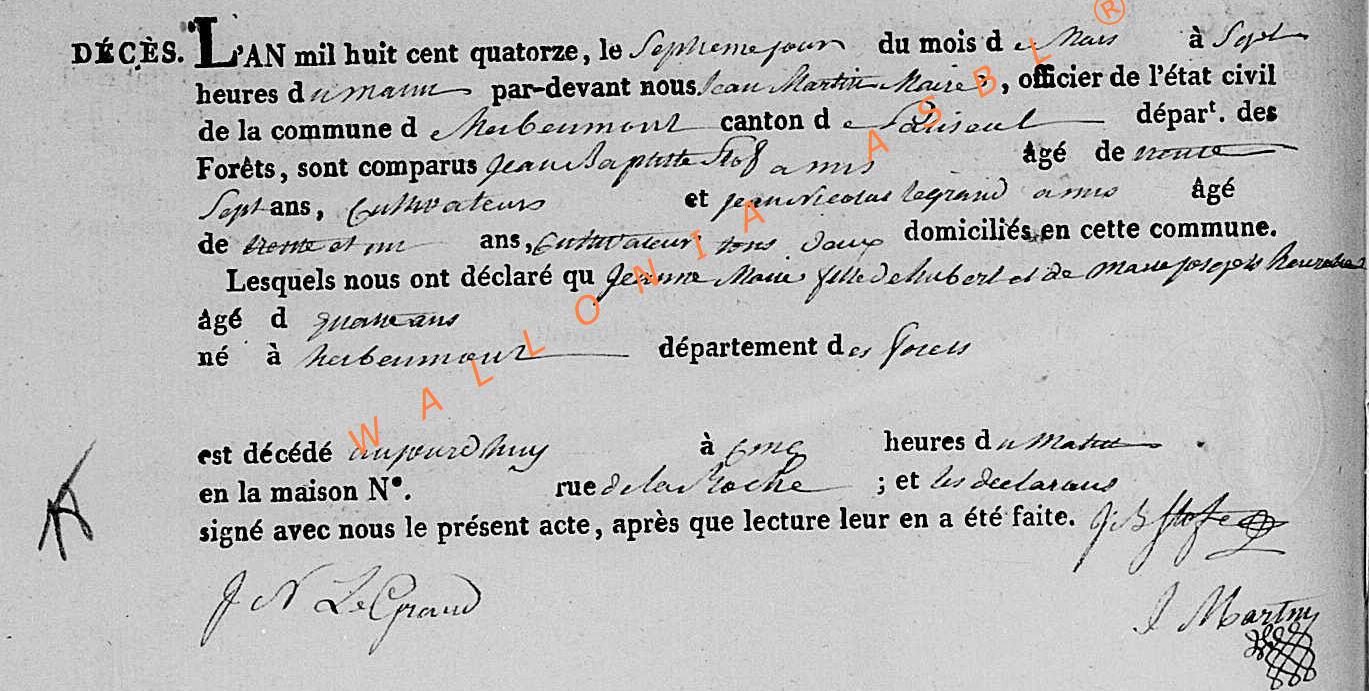 DÉCÈS. L'AN mil huit cent quatorze, le Septieme jour du mois de Mars à Sept
heures du matin par-devant nous Jean Martin Maire, officier de l'état civil
de la commune d herbeumont canton de Paliseul dépar^t. des
Forêts, sont comparus Jean Baptiste Stof amis âgé de trente
Sept ans, Cultivateurs et jean Nicolas legrand amis âgé
de trente et un ans, Cultivateur tous deux domiciliés en cette commune.
Lesquels nous ont déclaré qu Jeanne Marie fille de hubert et de marie joseph
âgé d quatre ans
né à herbeumont département des forets
est décédé aujourd huy à cinq heures du Matin
en la maison N°. rue de la Roche ; et les declarans
signé avec nous le présent acte, après que lecture leur en a été faite. J: B
J N LeGrand
J Martiny
WALLONIA ASBL ®